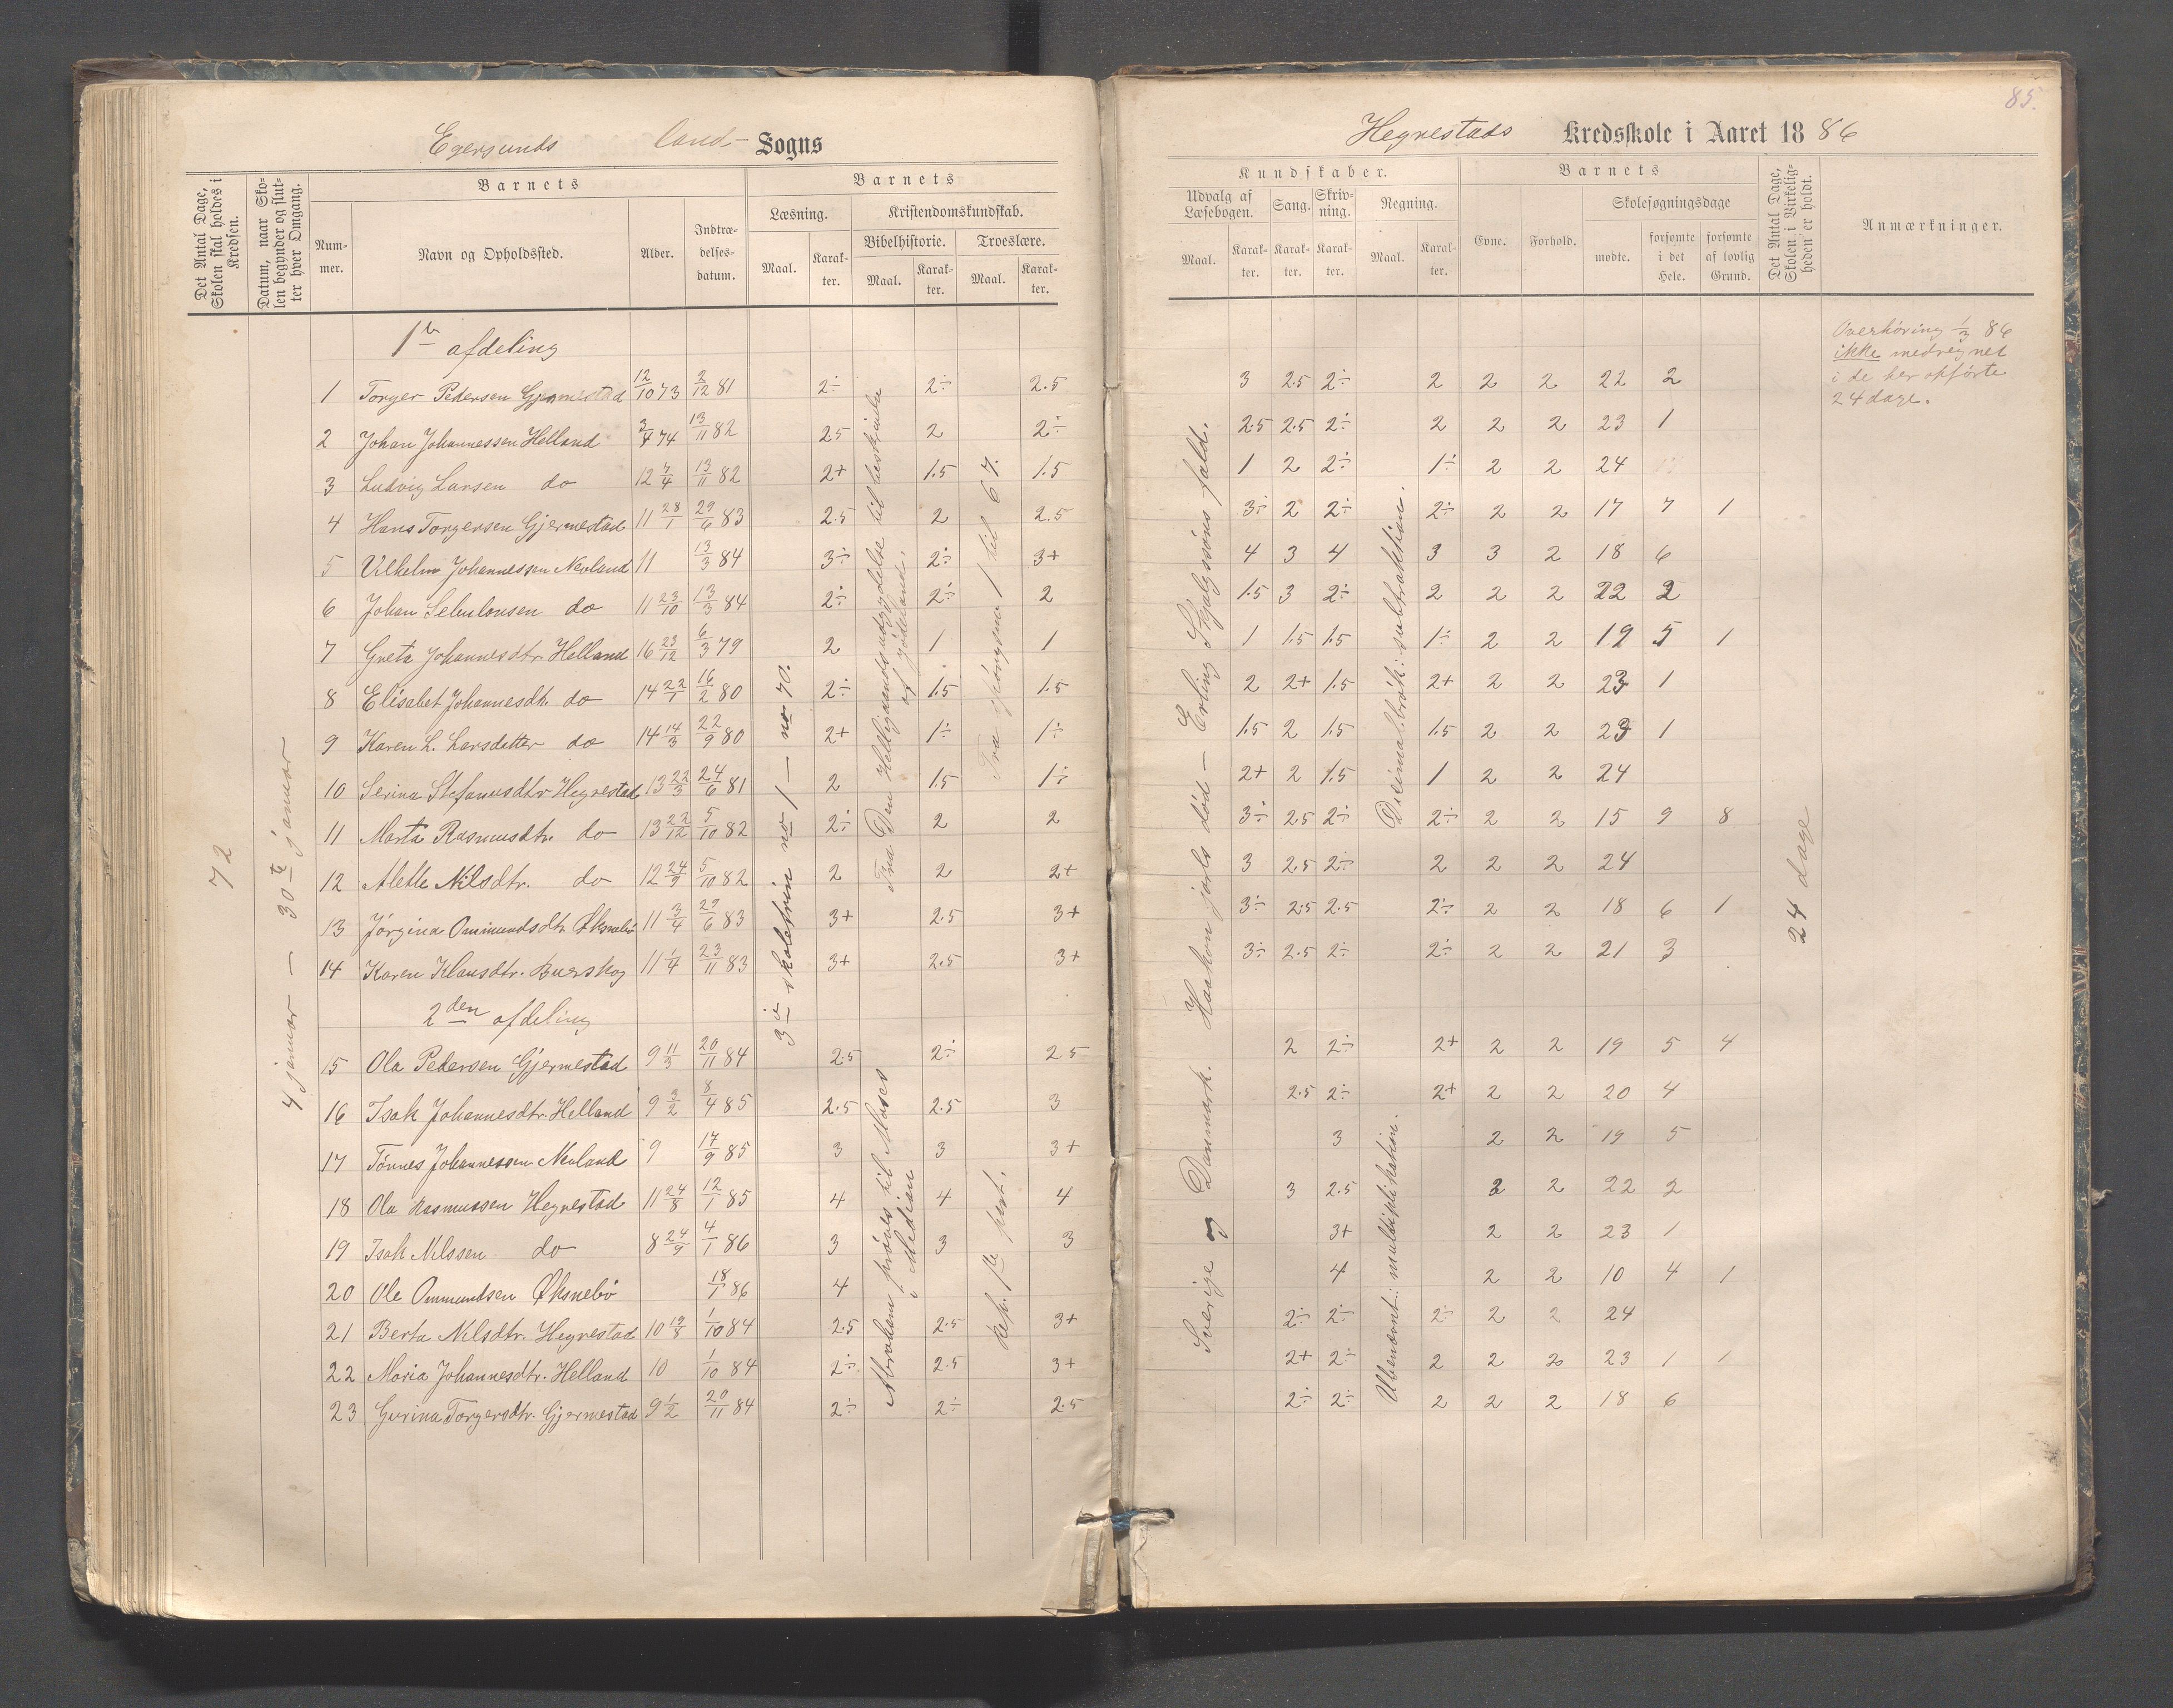 85.
Egersunds land- Sogns
Hegrestads Kredsskole i Aaret 1886
Det Antal Dage, Skolen skal holdes i Kredsen.
Datum, naar Skolen begynder og slutter hver Omgang.
Barnets
Nummer.
Navn og Opholdssted.
Alder.
Indtrædelsesdatum.
Barnets
Læsning.
Maal.
Karakter.
Kristendomskundskab.
Bibelhistorie.
Maal.
Karakter.
Troeslære.
Maal.
Karakter.
Kundskaber.
Udvalg af Læsebogen.
Maal.
Karakter.
Sang.
Karakter.
Skrivning.
Karakter.
Regning.
Maal.
Karakter.
Barnets
Evne.
Forhold.
Skolesøgningsdage
mødte.
forsømte i det Hele.
forsømte af lovlig Grund.
Det Antal Dage, Skolen i Virkeligheden er holdt.
Anmærkninger.
72
4 januar — 30te januar
1ste afdeling
1 Torger Pedersen Gjermestad 12/10 73 2/12 81 2÷ 2÷ 2.5 3 2.5 2÷ 2 2 2 22 2
2 Johan Johannessen Helland 3/4 74 13/11 82 2.5 2 2÷ 2.5 2.5 2÷ 2 2 2 23 1
3 Ludvig Larsen do 12 7/4 13/11 82 2+ 1.5 1.5 1 2 2÷ 1÷ 2 2 24
4 Hans Torgersen Gjermestad 11 28/1 29/6 83 2.5 2 2.5 3÷ 2 2÷ 2÷ 2 2 17 7 1
5 Vilhelm Johannessen Neuland 11 13/3 84 3÷ 2÷ 3+ 4 3 4 3 3 2 18 6
6 Johan Sebulonsen do 11 23/10 13/3 84 2÷ 2÷ 2 1.5 3 2÷ 2 2 2 22 2
7 Greta Johannesdtr. Helland 16 23/12 6/3 79 2 1 1 1 1.5 1.5 1÷ 2 2 19 5 1
8 Elisabet Johannesdtr. do 14 22/1 16/2 80 2÷ 1.5 1.5 2 2+ 1.5 2+ 2 2 23 1
9 Karen L. Larsdatter do 14 14/3 22/9 80 2+ 1÷ 1÷ 1.5 2 1.5 1.5 2 2 23 1
10 Serina Stefanusdtr Hegrestad 13 22/3 24/6 81 2 1.5 1÷ 2+ 2 1.5 1 2 2 24
11 Marta Rasmusdtr. do 13 22/12 5/10 82 2÷ 2 2 3÷ 2.5 2÷ 2÷ 2 2 15 9 8
12 Alette Nilsdtr. do 12 24/9 5/10 82 2 2 2+ 3 2.5 2÷ 2 2 2 24
13 Jørgina Ommundsdtr. Øksnebø 11 3/4 29/6 83 3+ 2.5 3+ 3÷ 2.5 2.5 2÷ 2 2 18 6 1
14 Karen Klausdtr. Buerskog 11 1/4 23/11 83 3+ 2.5 3+ 3÷ 2.5 2÷ 2÷ 2 2 21 3
2den afdeling
15 Ola Pedersen Gjermestad 9 11/3 20/11 84 2.5 2÷ 2.5 2 2÷ 2+ 2 2 19 5 4
16 Isak Johannesdtr. Helland 9 3/2 8/4 85 2.5 2.5 3 2.5 2÷ 2+ 2 2 20 4
17 Tønnes Johannessen Neuland 9 17/9 85 3 3 3+ 3 2 2 19 5
18 Ola Rasmussen Hegrestad 11 24/8 12/1 85 4 4 4 3 2.5 3 2 22 2
19 Isak Nilssen do 8 24/9 4/1 86 3 3 3 3+ 2 2 23 1
20 Ole Ommundsen Øksnebø 18/1 86 4 4 2 2 10 4 1
21 Berta Nilsdtr. Hegrestad 10 19/8 1/10 84 2.5 2.5 3+ 2÷ 2÷ 2÷ 2 2 24
22 Maria Johannesdtr. Helland 10 1/10 84 2÷ 2.5 3+ 2+ 2÷ 2 2 2 23 1 1
23 Gurina Torgersdtr. Gjermestad 9 1/2 20/11 84 2÷ 2÷ 2.5 2÷ 2÷ 2 2 2 18 6
3ie skoletrin no 1 — no 70.
Fra Den Helligaands udgydelse til beskrivelse af jødeland.
Abraham prøves til Moses i Median
Fra spørgsm 1 til 67.
kap. 1ste part.
Haakon jarls død — Erling Skjalgssøns fald.
Sverige og Danmark.
Decimalbrøk: subtraktion.
Ubenævnt: multiplikation.
24 dage
Overhøring 1/3 86
ikke medregnet
i de her opførte
24 dage.